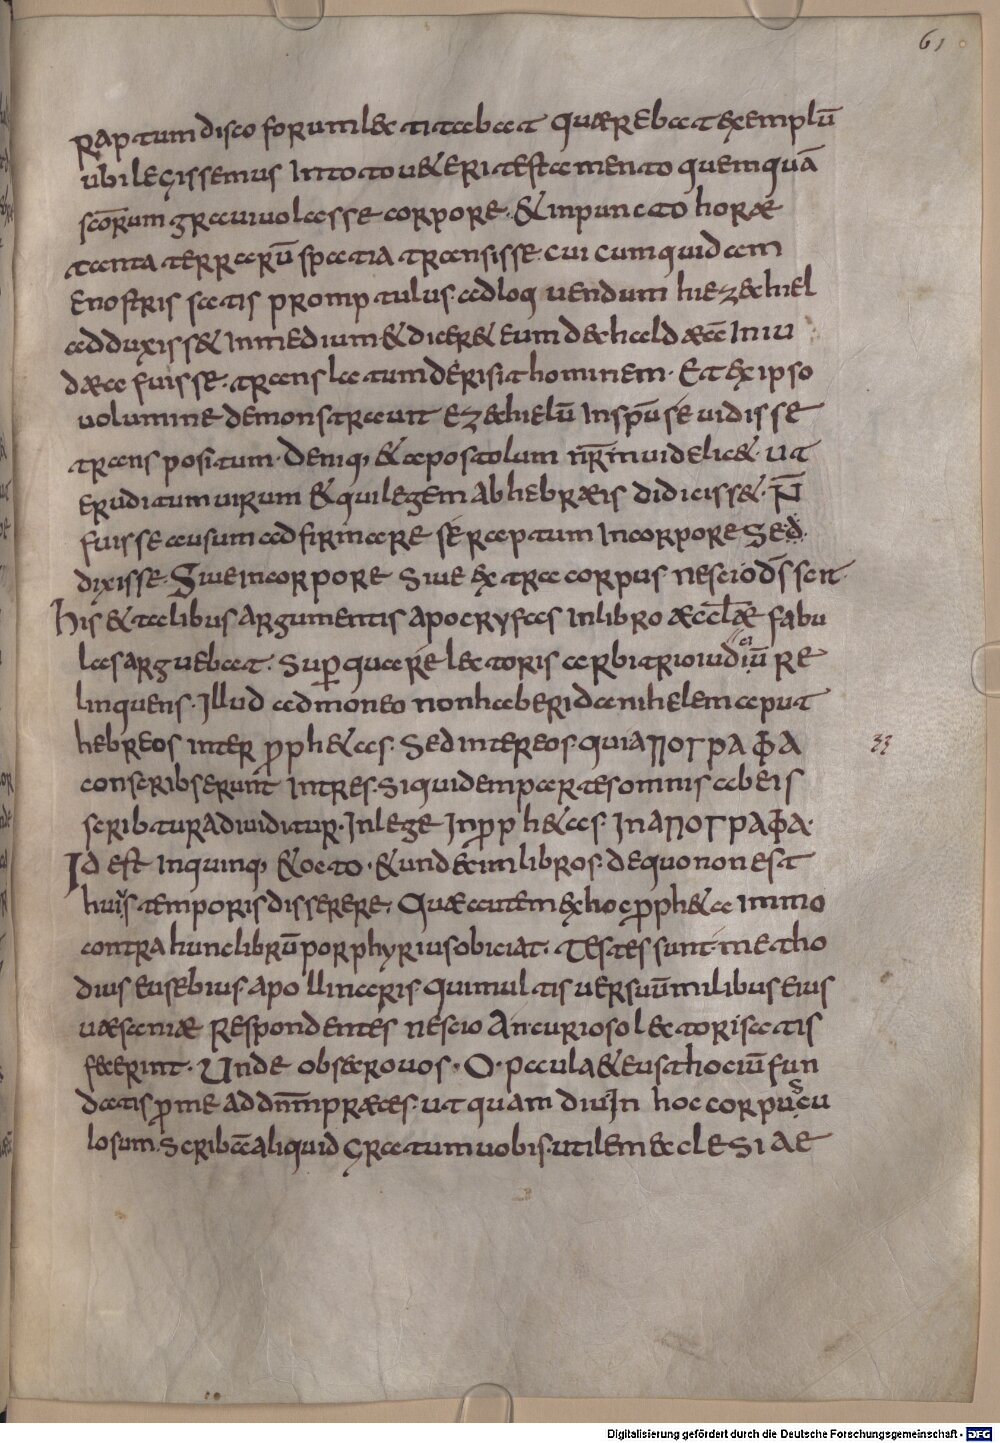 61
raptum disco forum lectitabat quaerebat exemplū
ubi legissemus In toto ueteri testamento quemquā
scōrum graui uolasse corpore. & in puncto horae
tanta terrarū spatia transisse. cui cum quidam
e nostris satis promptulus. ad loquendum hiezechiel
adduxiss& In medium & dicer& eum de chaldaeā In iu
daea fuisse. translatum derisit hominem. Et ex ipso
uolumine demonstrauit ezechielū In spū se uidisse
transpositum. Deniq, & apostolum nr̄m uidelic&. ut
eruditum uirum & qui legem ab hebraeis didiciss&. N̄
fuisse ausum adfirmare se raptum In corpore Sed
dixisse. Siue in corpore siue extra corpus nescio d̄s scit.
his & talibus argumentis apocryfas In libro aeccl̄ae fabu
las arguebat. Super qua re lectoris arbitrio iudiciū re
linquens. Illud admoneo non haberi danihelem aput
hebreos inter pp̱h&as. Sed inter eos. qui ΑΠΟΓΡΑΦΑ
conscribserunt In tres. siquidem partes omnis ab eis
scribtura diuiditur. In lege In proph&as. In ΑΠΟΓΡΑΦΑ.
Id est In quinq, & octo. & undecim libros. de quo non est
huius temporis disserere. Quae autem ex hoc proph&a immo
contra hunc librū porphyrius obiciat. Testes sunt. metho
dius eusebius. apollinaris qui multis uersuūm milibus eius
uaesaniae respondentes nescio An curioso lectori satis
fecerint. Unde obsecro uos. O. paula & eusthociū fun
datis pro me ad dn̄m praeces. ut quam diu In hoc corpuscu
lo sum. scribā aliquid gratum uobis. utilem eclesiae
33
Digitalisierung gefördert durch die Deutsche Forschungsgemeinschaft - DFG